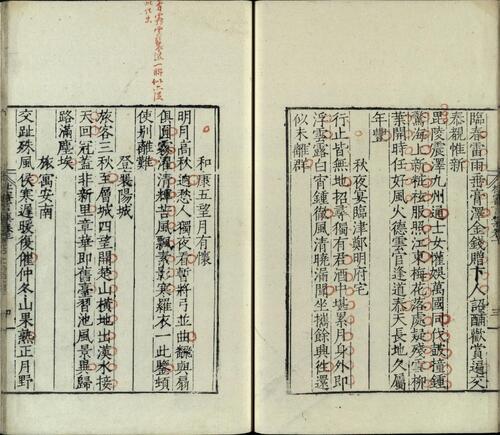 臨春雷雨垂膏澤金錢贈下人詔酺歡賞遍交
泰觀惟新
毘陵震澤九州通士女懽娛萬國同伐鼓撞鐘
驚海上新粧袨服照江東梅花落處疑殘雪柳
葉開時任好風火德雲官逢道泰天長地久屬
年豐
秋夜宴臨津鄭明府宅
行止皆無地招尋獨有君酒中堪累月身外即
浮雲露白宵鍾徹風清曉漏聞坐攜餘興往還
似未離群
和康五望月有懷
明月高秋迥愁人獨夜看暫將弓並曲飜與扇
俱圓霧濯清輝苦風飄素影寒羅衣一此鑒頓
使別離難
登襄陽城
旅客三秋至層城四望開楚山橫地出漢水接
天回冠蓋非新里章華即舊臺習池風景異歸
路滿塵埃
旅寓安南
交趾殊風候寒遲暖復催仲冬山果熟正月野